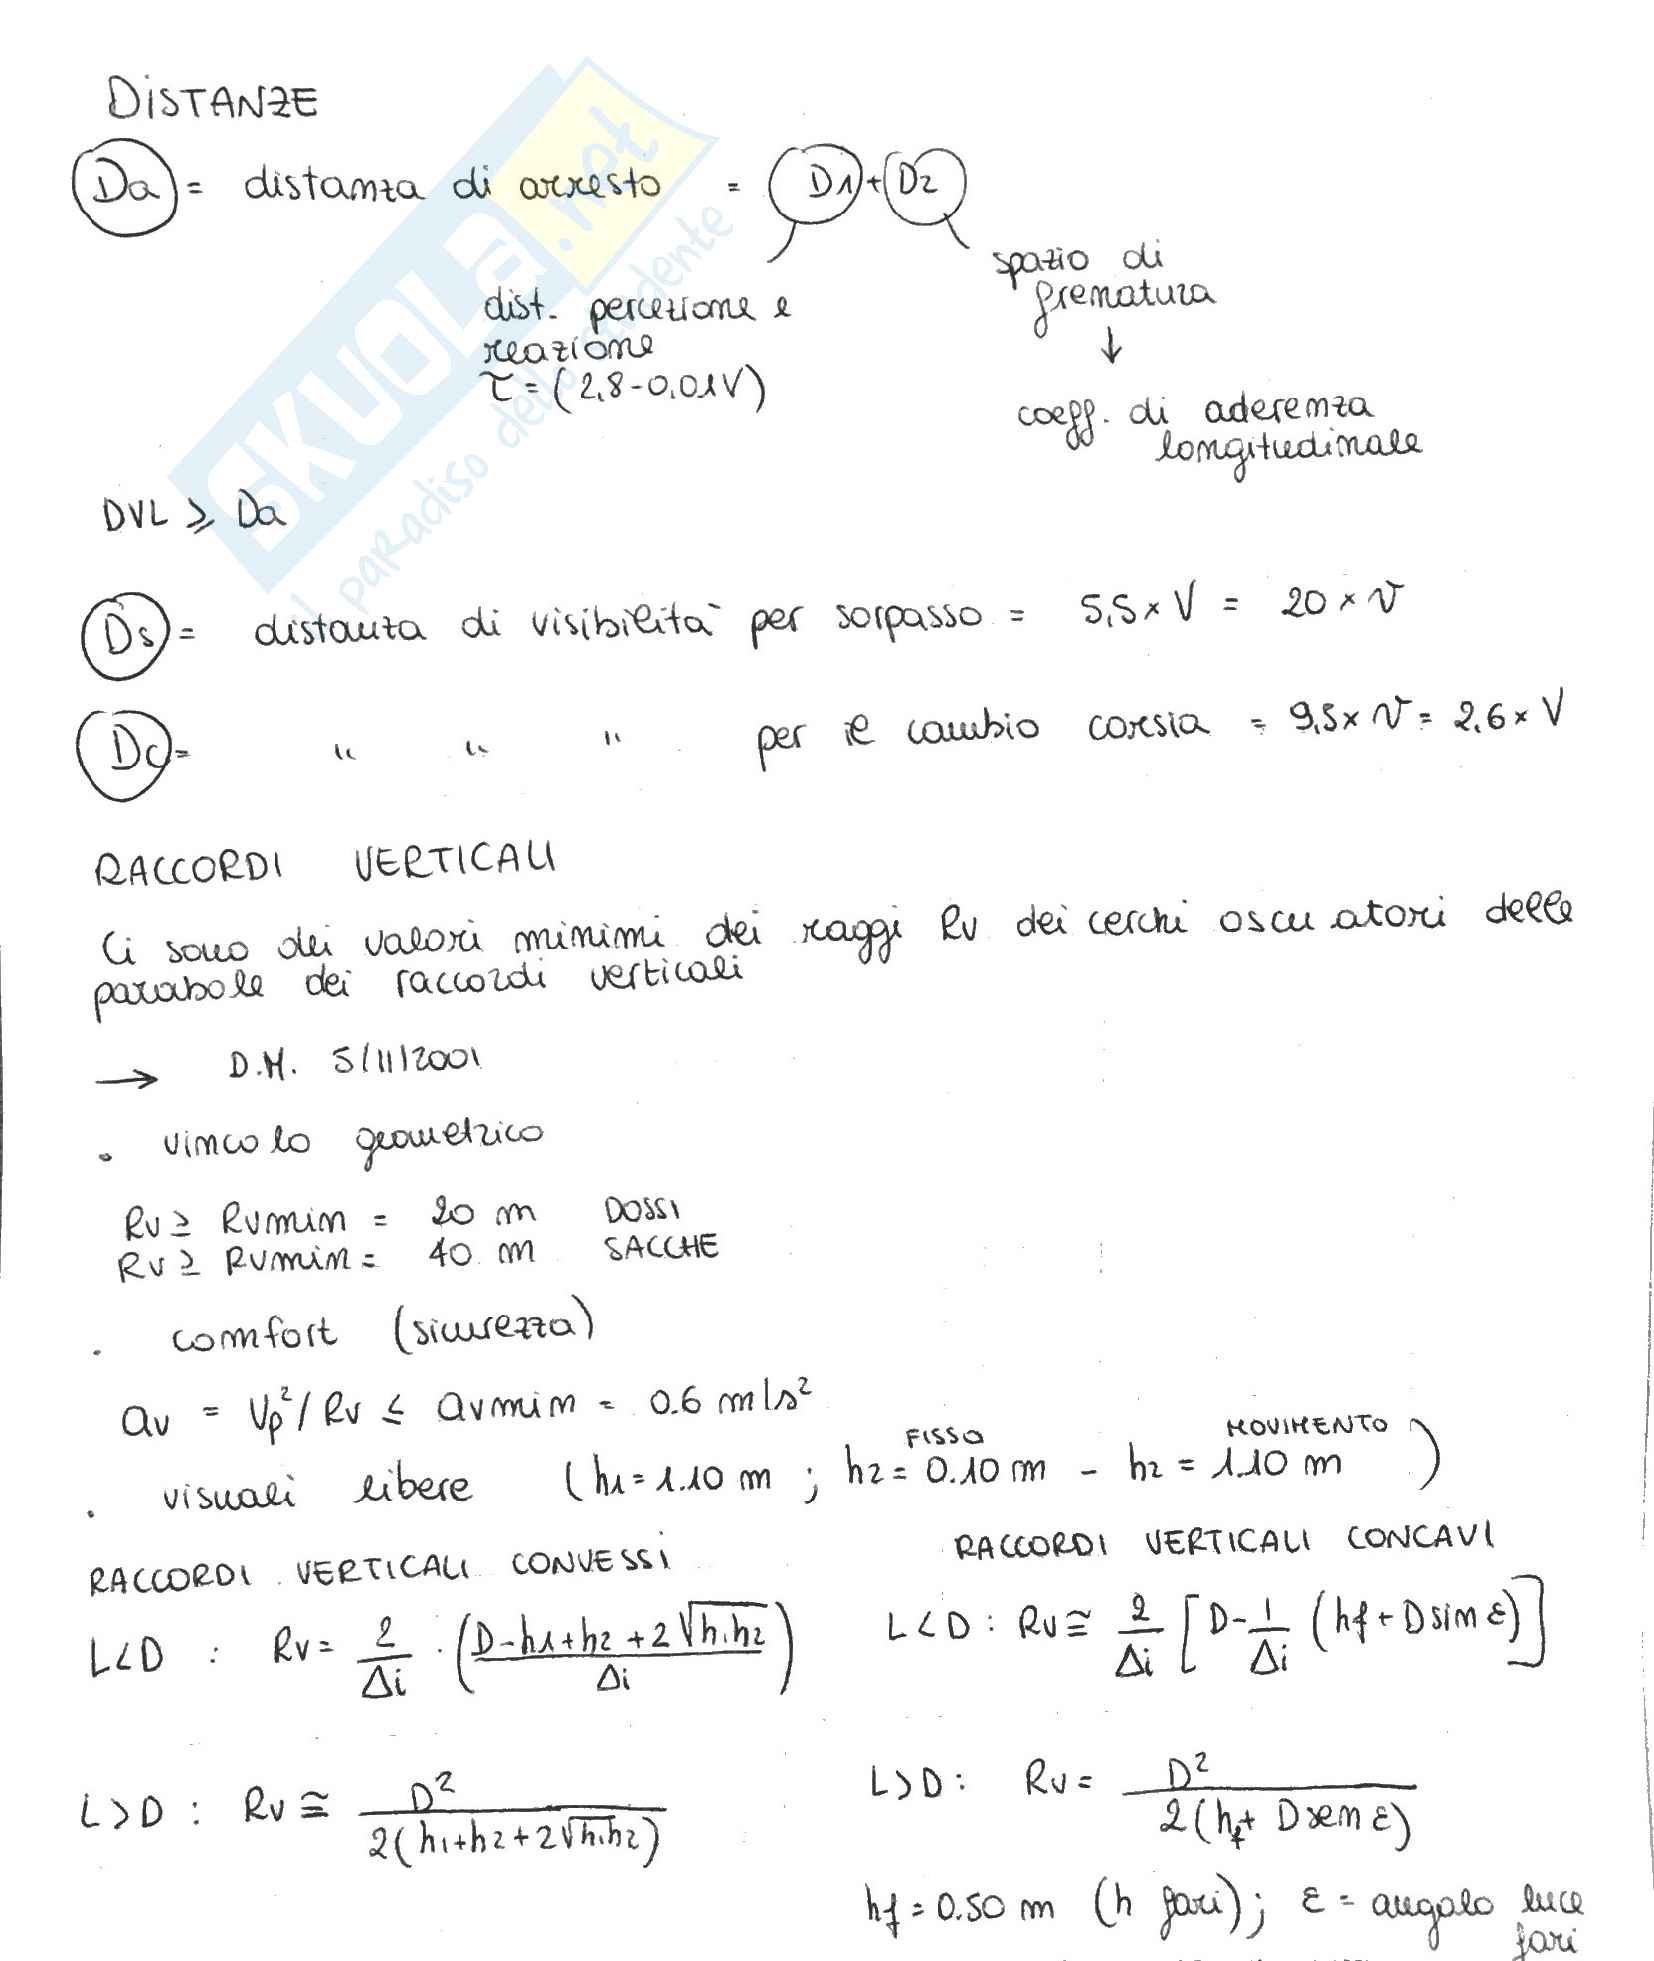 DISTANZE
Da = distanza di arresto = D1 + D2
spazio di
frenatura
dist. percezione e
reazione
↓
τ = (2,8-0,01V)
coeff. di aderenza
longitudinale
DVL ⩾ Da
Ds = distanza di visibilità per sorpasso = 5,5 × V = 20 × v
Dc = " " " per il cambio corsia = 9,5 × v = 2,6 × V
RACCORDI VERTICALI
Ci sono dei valori minimi dei raggi Rv dei cerchi oscu atori delle
parabole dei raccordi verticali
→ D.M. 5/11/2001
. vincolo geometrico
Rv ≥ Rvmin = 20 m DOSSI
Rv ≥ Rvmin = 40 m SACCHE
. comfort (sicurezza)
av = Vp²/Rv ≤ avmin = 0.6 m/s²
. visuali libere (h1 = 1.10 m ; h2 = 0.10 m FISSO - h2 = 1.10 m MOVIMENTO)
RACCORDI VERTICALI CONVESSI
L<D : Rv = 2/Δi · (D-h1+h2+2√h1h2/Δi)
L>D : Rv ≅ D²/2(h1+h2+2√h1h2)
RACCORDI VERTICALI CONCAVI
L<D : Rv ≅ 2/Δi [D-1/Δi (hf + D sin ε)]
L>D : Rv = D²/2(hf + D sen ε)
hf = 0.50 m (h fari); ε = angolo luce
fari
SKUOLA.net
il paradiso dello studente